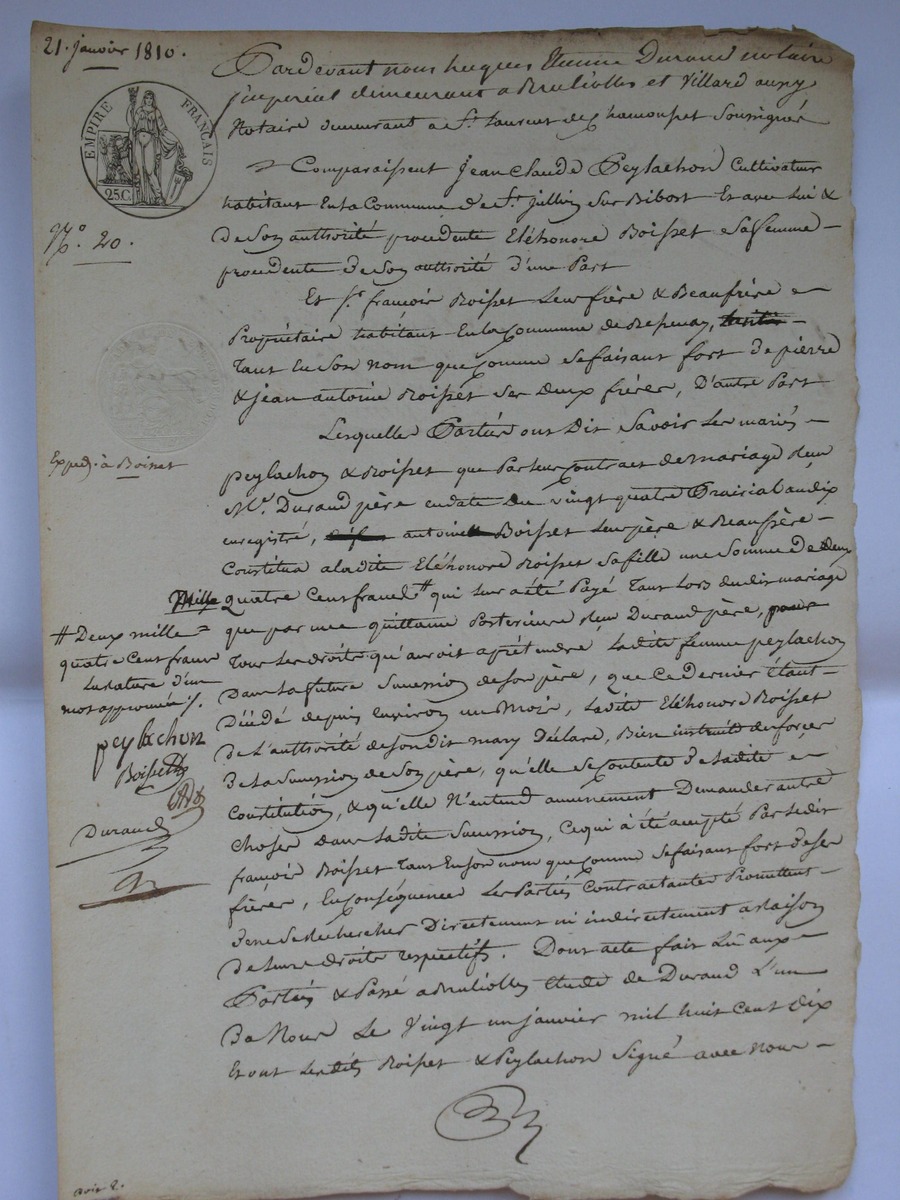 21. janvier 1810.
EMPIRE FRANÇAIS
25C.
N.o 20.
Expédi. à Boisset
Pardevant nous hugues Etienne Durand notaire
imperial demeurant a Brulioles et Villard aussy
Notaire demeurant a St. Laurent de Chamousset Soussignés
Comparaissent Jean Claude Peylachon Cultivateur
habitant En la Commune de St. Jullien Sur Bibost Et avec lui &
De Son authorité procedente Eléhonore Boisset Sa femme
procedente de Son authorité d'une Part
Et Sr. françois Boisset Leur frère & Beaufrère
Propriétaire habitant En la Commune de
Tant En Son nom que Comme se faisant fort de pierre
& jean antoine Boisset Ses Deux frères, D'autre Part
Lesquelles Parties ont Dit Savoir Les mariés
peylachon & Boisset que Par leur Contract de mariage Reçu
Me. Durand père en date du vingt quatre Prairial an dix
enregistré, antoine Boisset Leur père & Beaupère
Constitua a ladite Eléhonore Boisset Sa fille une Somme de Deux
Mille quatre Cent francs # qui leur a été Payé Tant Lors dudit mariage
que par une quittance Posterieure Reçu Durand père, pour
Tous Les droits qu'auroit a prétendre Ladite femme peylachon
Dans la future Succession de Son père, que Ce Dernier étant
Décédé depuis environ un Mois, Ladite Eléhonore Boisset
De L'authorité de Son dit mary Déclare, Bien instruite des forces
de La Succession de Son père, qu'elle Se Contente de Ladite
Constitution, & qu'elle N'entend aucunement Demander autre
Choses Dans Ladite Succession, Ce qui a été accepté Par Ledit
françois Boisset Tant En Son nom que Comme Se faisant fort de ses
frères, En Conséquence Les Parties Contractantes Promettent
de ne Se Rechercher Directement ni indirectement a Raison
de Leurs droits respectifs. Dont acte fait Lû aux
Parties & Passé a Brulioles Etude de Durand L'un
De Nous Le Vingt un janvier mil huit Cent Dix
Et ont Lesdits Boisset & Peylachon Signé avec Nous
# Deux mille
quatre Cent francs
La rature d'un
mot approuvée /.
peylachon
Boissett
Durand